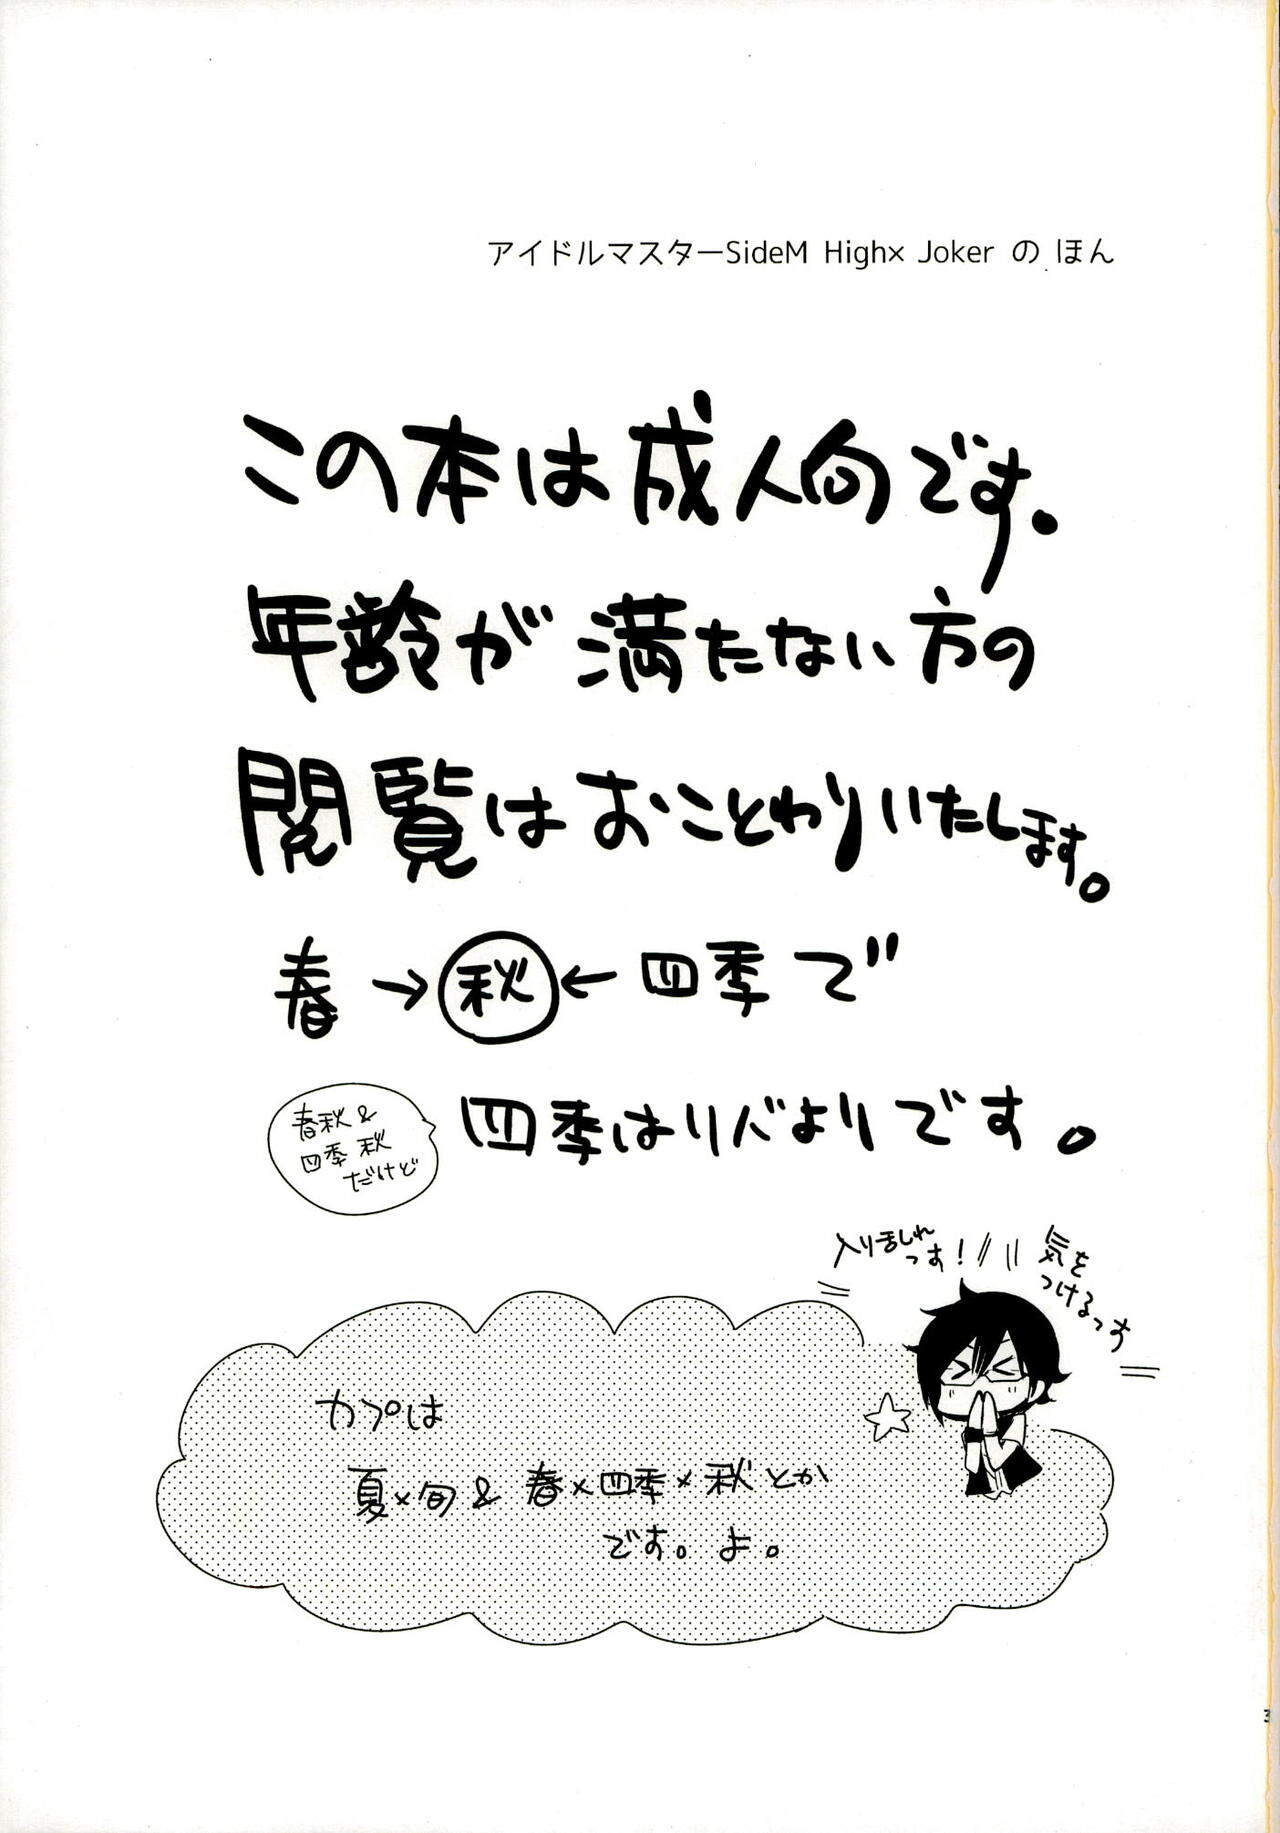 アイドルマスターSideM High× Joker の ほん
この本は成人向です。
年齢が満たない方の
閲覧はおことわりいたします。
春→秋←四季で
四季はリバよりです。
春秋&
四季秋
だけど
入り乱れ
っす!
気を
つけるっす
カプは
夏×旬& 春×四季×秋とか
です。よ。
3